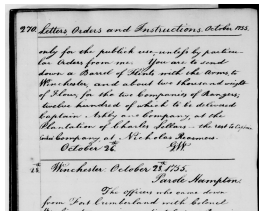 270. Letters, Orders and Instructions. October 1755.
only for the publick use—unless by particu-
lar Orders from me. You are to send
down a Barrel of Flints with the Arms, to
Winchester, and about two thousand weight
of Flour, for the two companies of Rangers;
twelve hundred of which to be delivered
Captain Ashby and Company, at the
Plantation of Charles Sellars—the rest to Captain
Company at Nicholas Reasmers.
October 28. GW
28. Winchester: October 28th, 1755.
Parole Hampton.
The officers who came down
from Fort Cumberland with Colonel